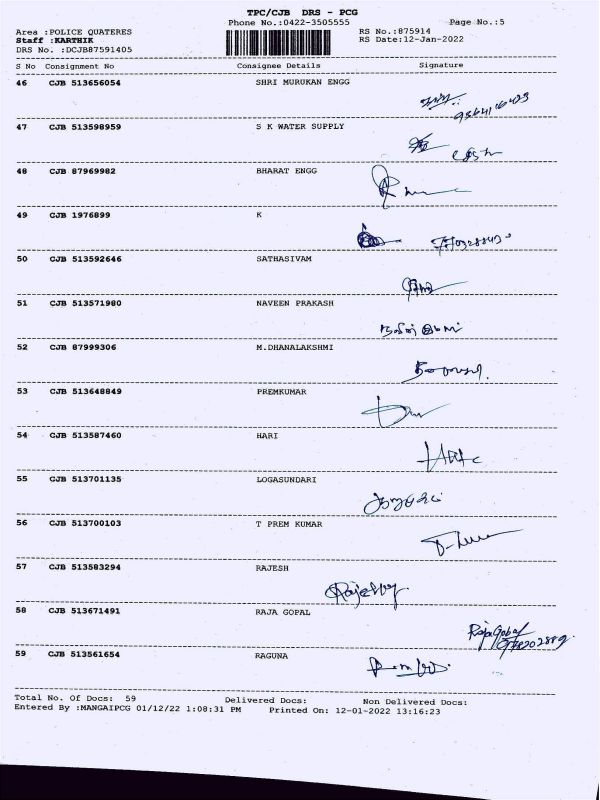 TPC/CJB DRS - PCG
Phone No.:0422-3505555 Page No.:5
Area :POLICE QUATERES RS No.:875914
Staff :KARTHIK RS Date:12-Jan-2022
DRS No. :DCJB87591405
S No Consignment No Consignee Details Signature
46 CJB 513656054 SHRI MURUKAN ENGG
47 CJB 513598959 S K WATER SUPPLY
48 CJB 87969982 BHARAT ENGG
49 CJB 1976899 K
50 CJB 513592646 SATHASIVAM
51 CJB 513571980 NAVEEN PRAKASH
52 CJB 87999306 M.DHANALAKSHMI
53 CJB 513648849 PREMKUMAR
54 CJB 513587460 HARI
55 CJB 513701135 LOGASUNDARI
56 CJB 513700103 T PREM KUMAR
57 CJB 513583294 RAJESH
58 CJB 513671491 RAJA GOPAL
RajaGobal
59 CJB 513561654 RAGUNA
Total No. Of Docs: 59 Delivered Docs: Non Delivered Docs:
Entered By :MANGAIPCG 01/12/22 1:08:31 PM Printed On: 12-01-2022 13:16:23